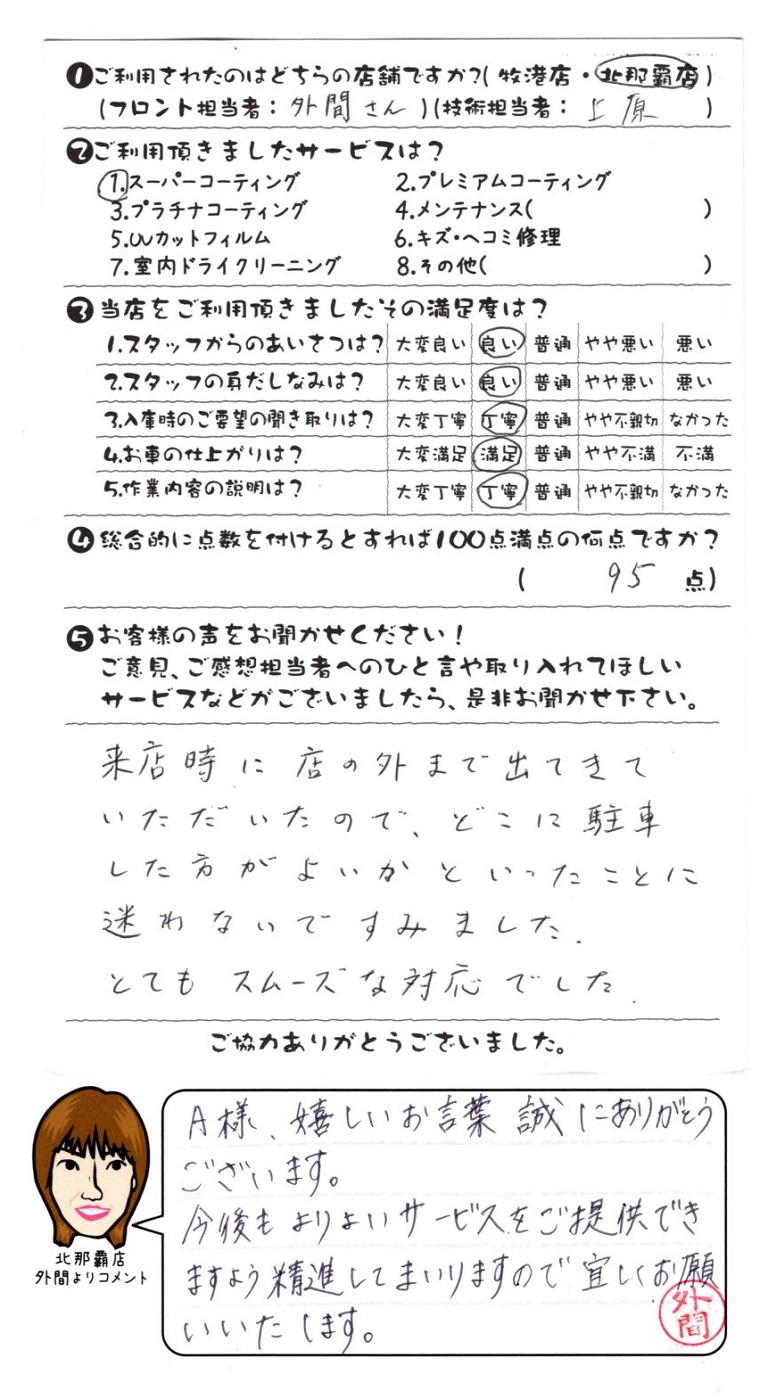 ❶ご利用されたのはどちらの店舗ですか?(牧港店・北那覇店)
(フロント担当者：外間さん)(技術担当者：上原)
❷ご利用頂きましたサービスは？
1.スーパーコーティング 2.プレミアムコーティング
3.プラチナコーティング 4.メンテナンス( )
5.UVカットフィルム 6.キズ・ヘコミ修理
7.室内ドライクリーニング 8.その他( )
❸当店をご利用頂きましたその満足度は？
1.スタッフからのあいさつは？ 大変良い 良い 普通 やや悪い 悪い
2.スタッフの身だしなみは？ 大変良い 良い 普通 やや悪い 悪い
3.入庫時のご要望の聞き取りは？ 大変丁寧 丁寧 普通 やや不親切 なかった
4.お車の仕上がりは？ 大変満足 満足 普通 やや不満 不満
5.作業内容の説明は？ 大変丁寧 丁寧 普通 やや不親切 なかった
❹総合的に点数を付けるとすれば100点満点の何点ですか？
( 95 点)
❺お客様の声をお聞かせください！
ご意見、ご感想担当者へのひと言や取り入れてほしい
サービスなどがございましたら、是非お聞かせ下さい。
来店時に店の外まで出てきて
いただいたので、どこに駐車
した方がよいかといったことに
迷わないですみました。
とてもスムーズな対応でした。
ご協力ありがとうございました。
A様、嬉しいお言葉 誠にありがとう
ございます。
今後もよりよいサービスをご提供でき
ますよう精進してまいりますので宜しくお願
いいたします。
北那覇店
外間よりコメント
外間